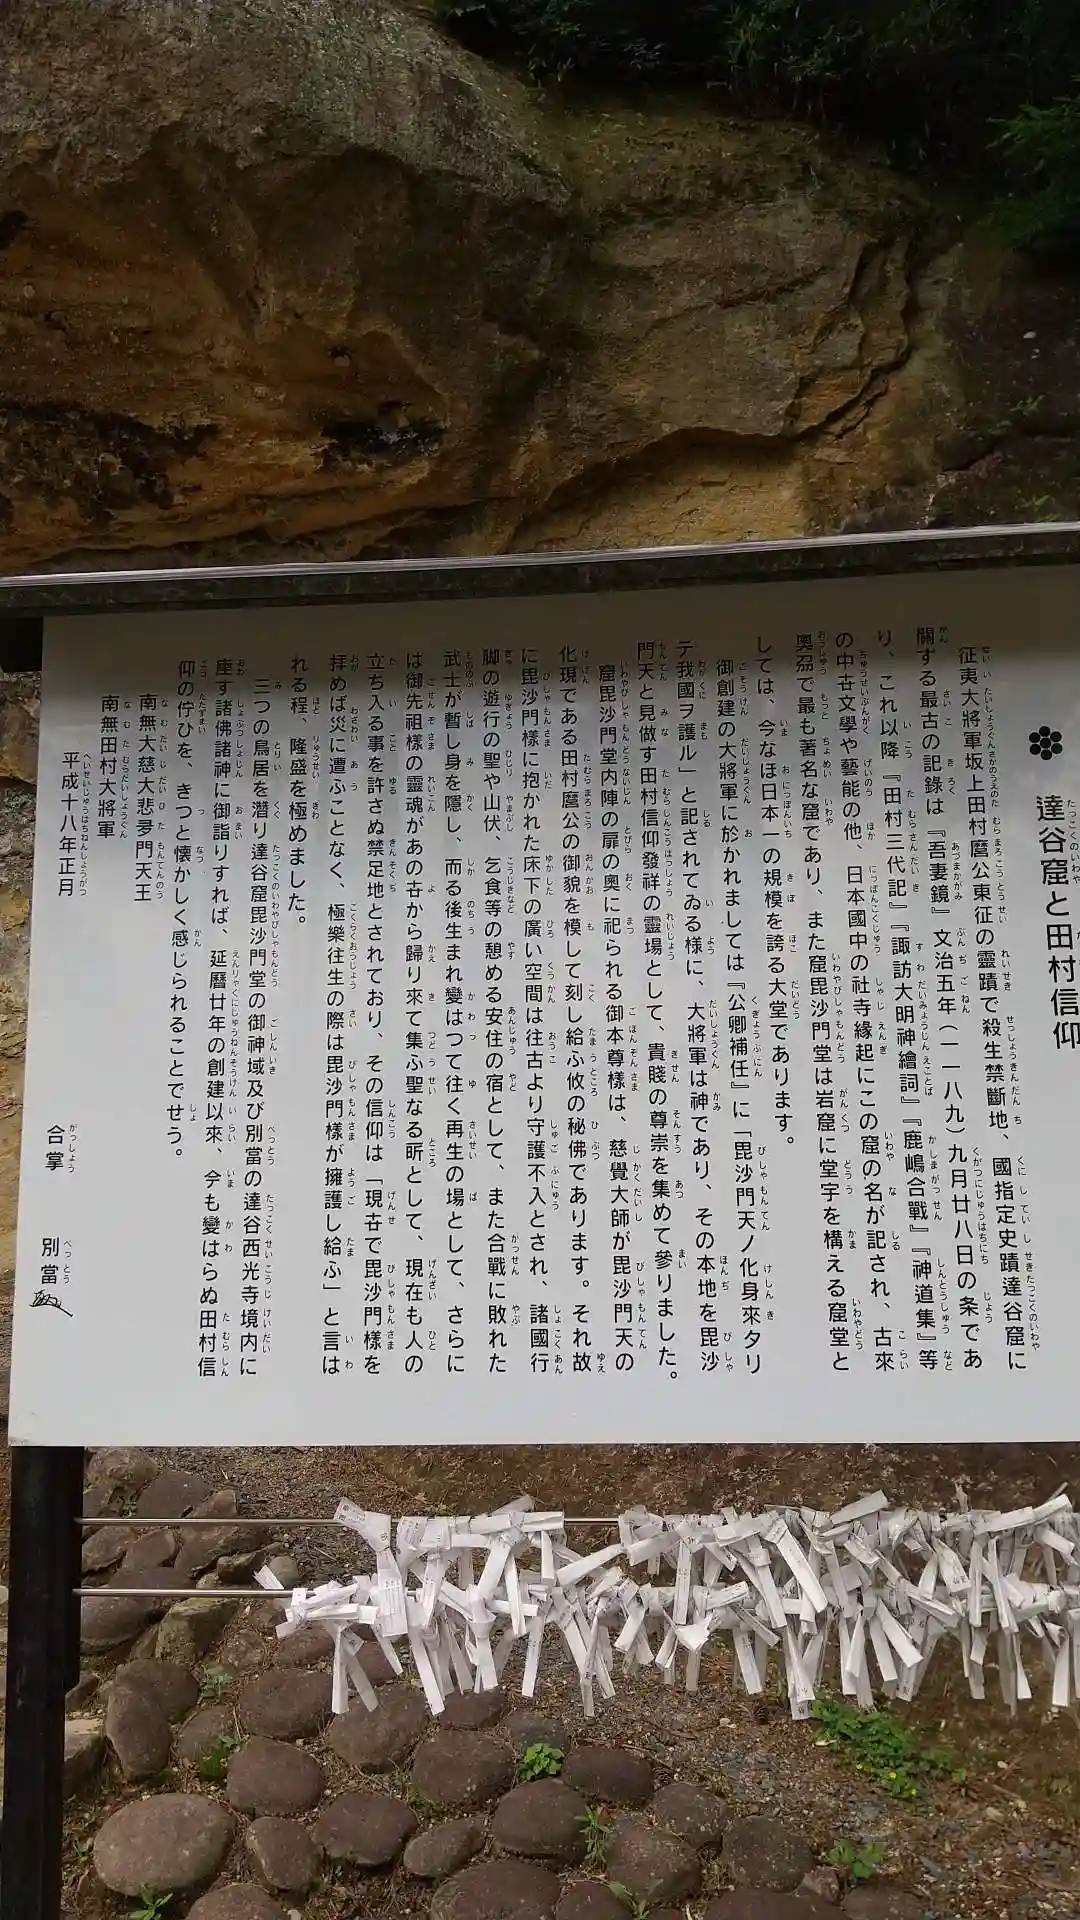 達谷窟と田村信仰
征夷大將軍坂上田村麿公東征の靈蹟で殺生禁斷地、國指定史蹟達谷窟に
關する最古の記錄は『吾妻鏡』文治五年(一一八九)九月廿八日の条であ
り、これ以降『田村三代記』『諏訪大明神繪詞』『鹿嶋合戰』『神道集』等
の中古文學や藝能の他、日本國中の社寺緣起にこの窟の名が記され、古來
奧刕で最も著名な窟であり、また窟毘沙門堂は岩窟に堂宇を構える窟堂と
しては、今なほ日本一の規模を誇る大堂であります。
御創建の大將軍に於かれましては『公卿補任』に「毘沙門天ノ化身來タリ
テ我國ヲ護ル」と記されてゐる様に、大將軍は神であり、その本地を毘沙
門天と見做す田村信仰發祥の靈場として、貴賤の尊崇を集めて參りました。
窟毘沙門堂内陣の扉の奧に祀られる御本尊樣は、慈覺大師が毘沙門天の
化現である田村麿公の御貌を模して刻し給ふ攸の秘佛であります。それ故
に毘沙門樣に抱かれた床下の廣い空間は往古より守護不入とされ、諸國行
脚の遊行の聖や山伏、乞食等の憩める安住の宿として、また合戰に敗れた
武士が暫し身を隱し、而る後生まれ變はつて往く再生の場として、さらに
は御先祖樣の靈魂があの世から歸り來て集ふ聖なる所として、現在も人の
立ち入る事を許さぬ禁足地とされており、その信仰は「現世で毘沙門樣を
拝めば災に遭ふことなく、極樂往生の際は毘沙門樣が擁護し給ふ」と言は
れる程、隆盛を極めました。
三つの鳥居を潛り達谷窟毘沙門堂の御神域及び別當の達谷西光寺境内に
座す諸佛諸神に御詣りすれば、延曆廿年の創建以來、今も變はらぬ田村信
仰の佇ひを、きつと懷かしく感じられることでせう。
南無大慈大悲夛門天王
南無田村大將軍
平成十八年正月
合掌 別當